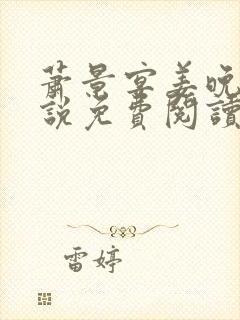 蕭景寧姜晚
說免費閱讀
雷婷